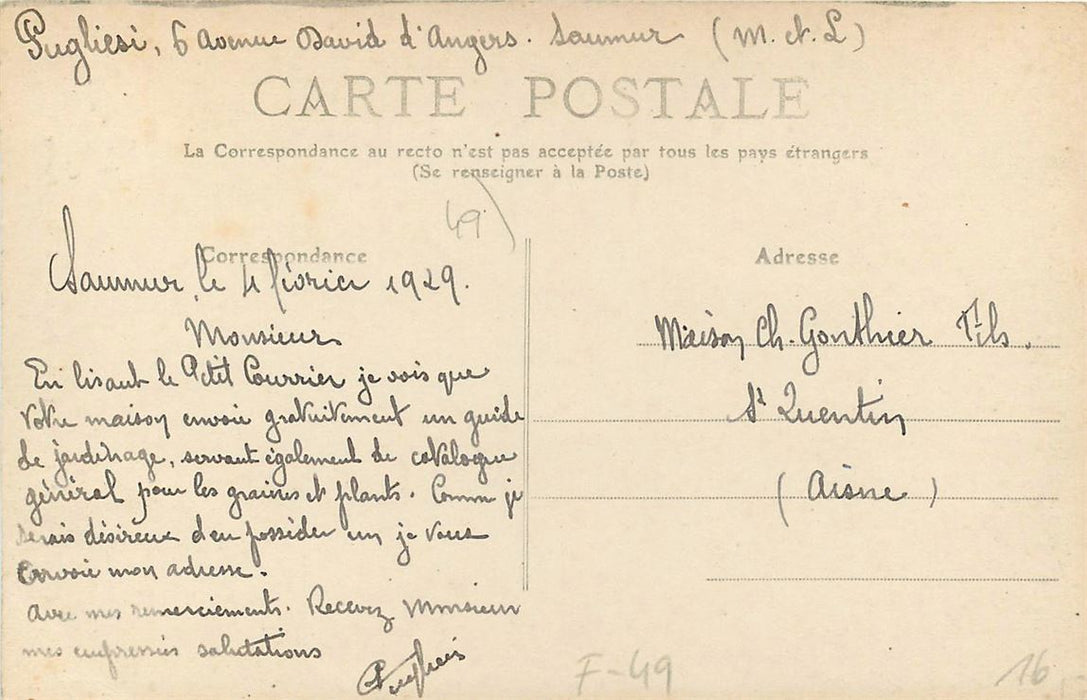 Pugliesi, 6 avenue David d'Angers. Saumur (M. et. L)
CARTE POSTALE
La Correspondance au recto n'est pas acceptée par tous les pays étrangers
(Se renseigner à la Poste)
49
Correspondance
Saumur, le 4 février 1929.
Monsieur
En lisant le Petit Courrier je vois que
votre maison envoie gratuitement un guide
de jardinage, servant également de catalogue
général pour les graines et plants. Comme je
serais désireux d'en posséder un je vous
envoie mon adresse.
avec mes remerciements. Recevez Monsieur
mes empressées salutations
Pugliesi
Adresse
Maison Ch. Gonthier Fils.
St Quentin
(Aisne)
F-49
16